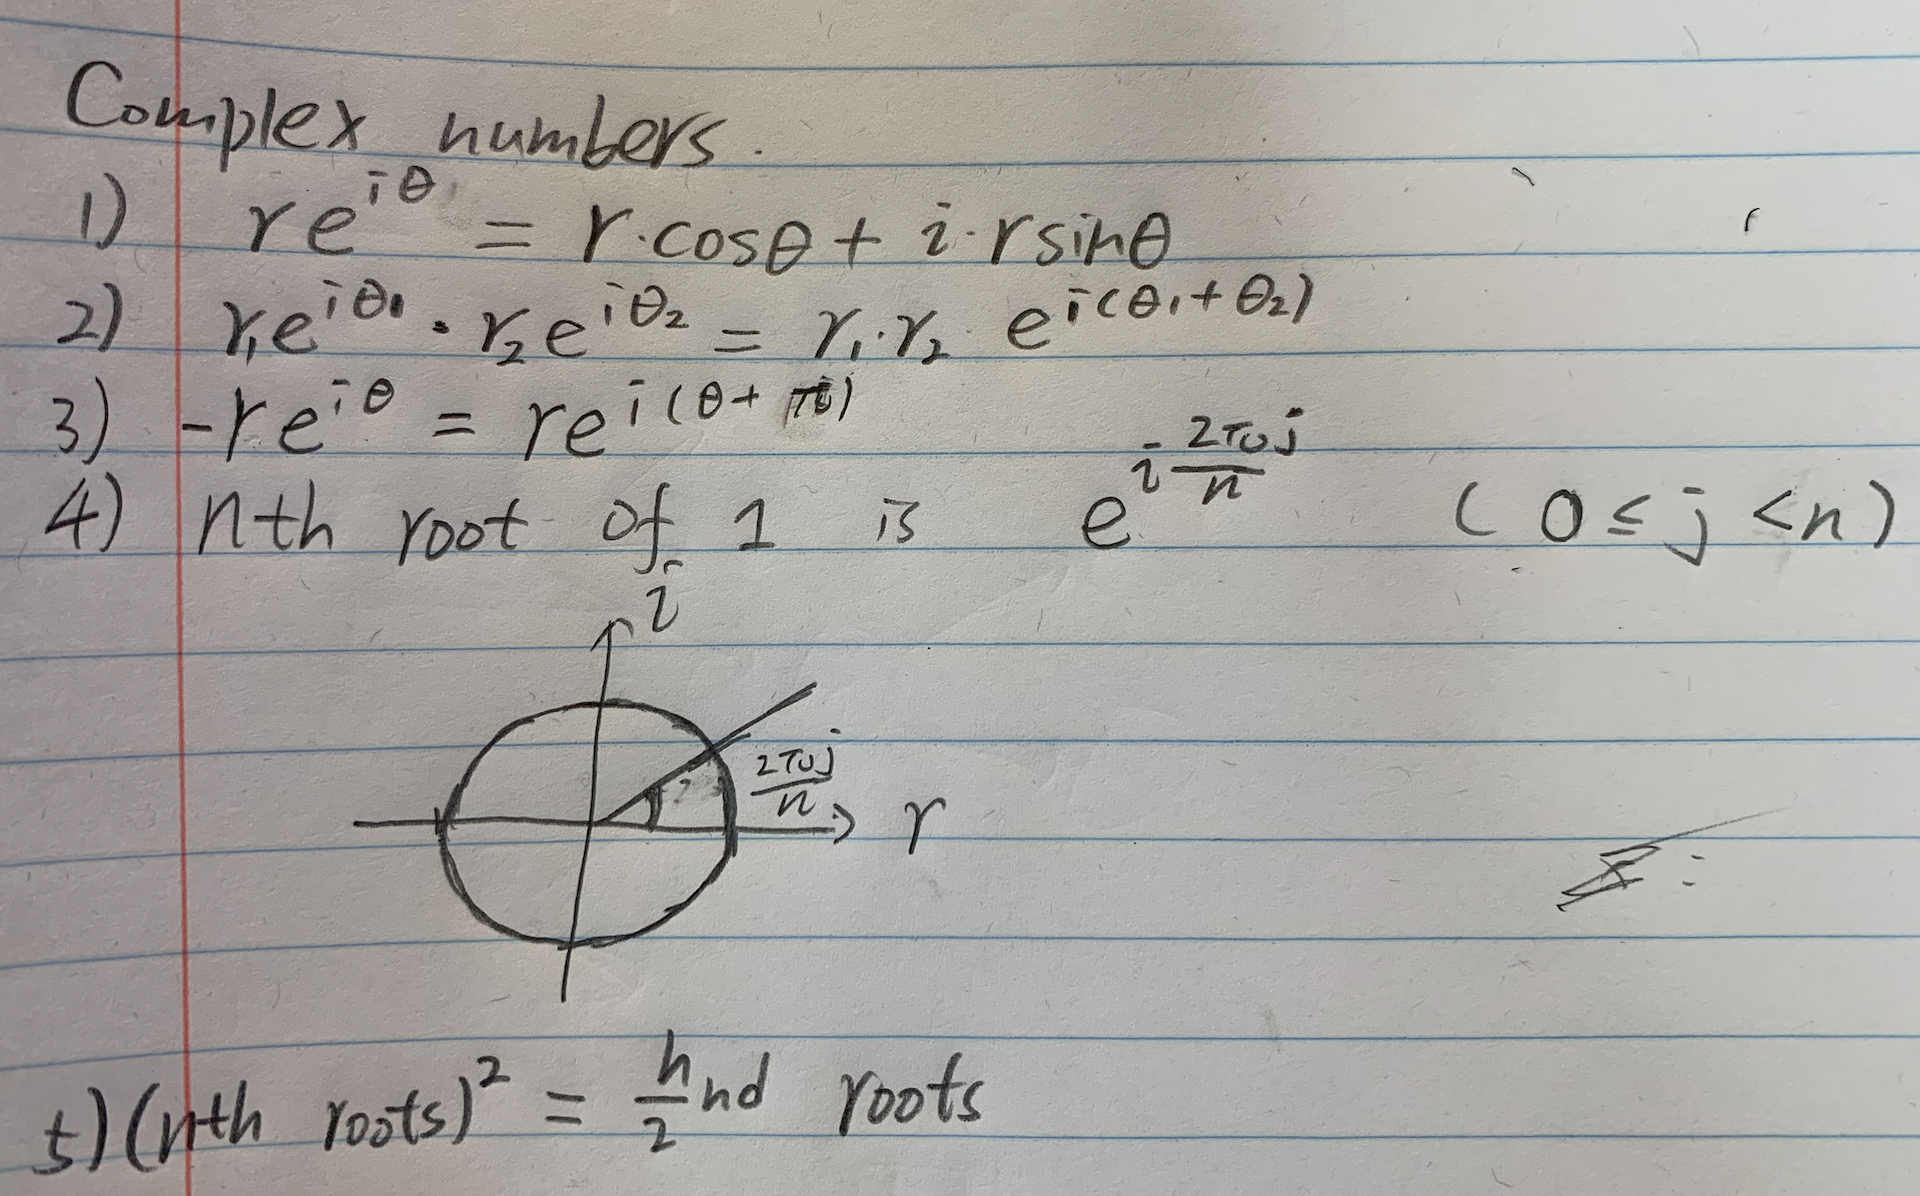 Complex numbers.
1) re^{iθ} = r·cosθ + i·rsinθ
2) r₁e^{iθ₁} · r₂e^{iθ₂} = r₁·r₂ e^{i(θ₁+θ₂)}
3) -re^{iθ} = re^{i(θ+π)}
4) nth root of 1 is e^{i\frac{2πj}{n}} (0 ≤ j < n)
i
\frac{2πj}{n}
r
5) (nth roots)² = \frac{n}{2}nd roots